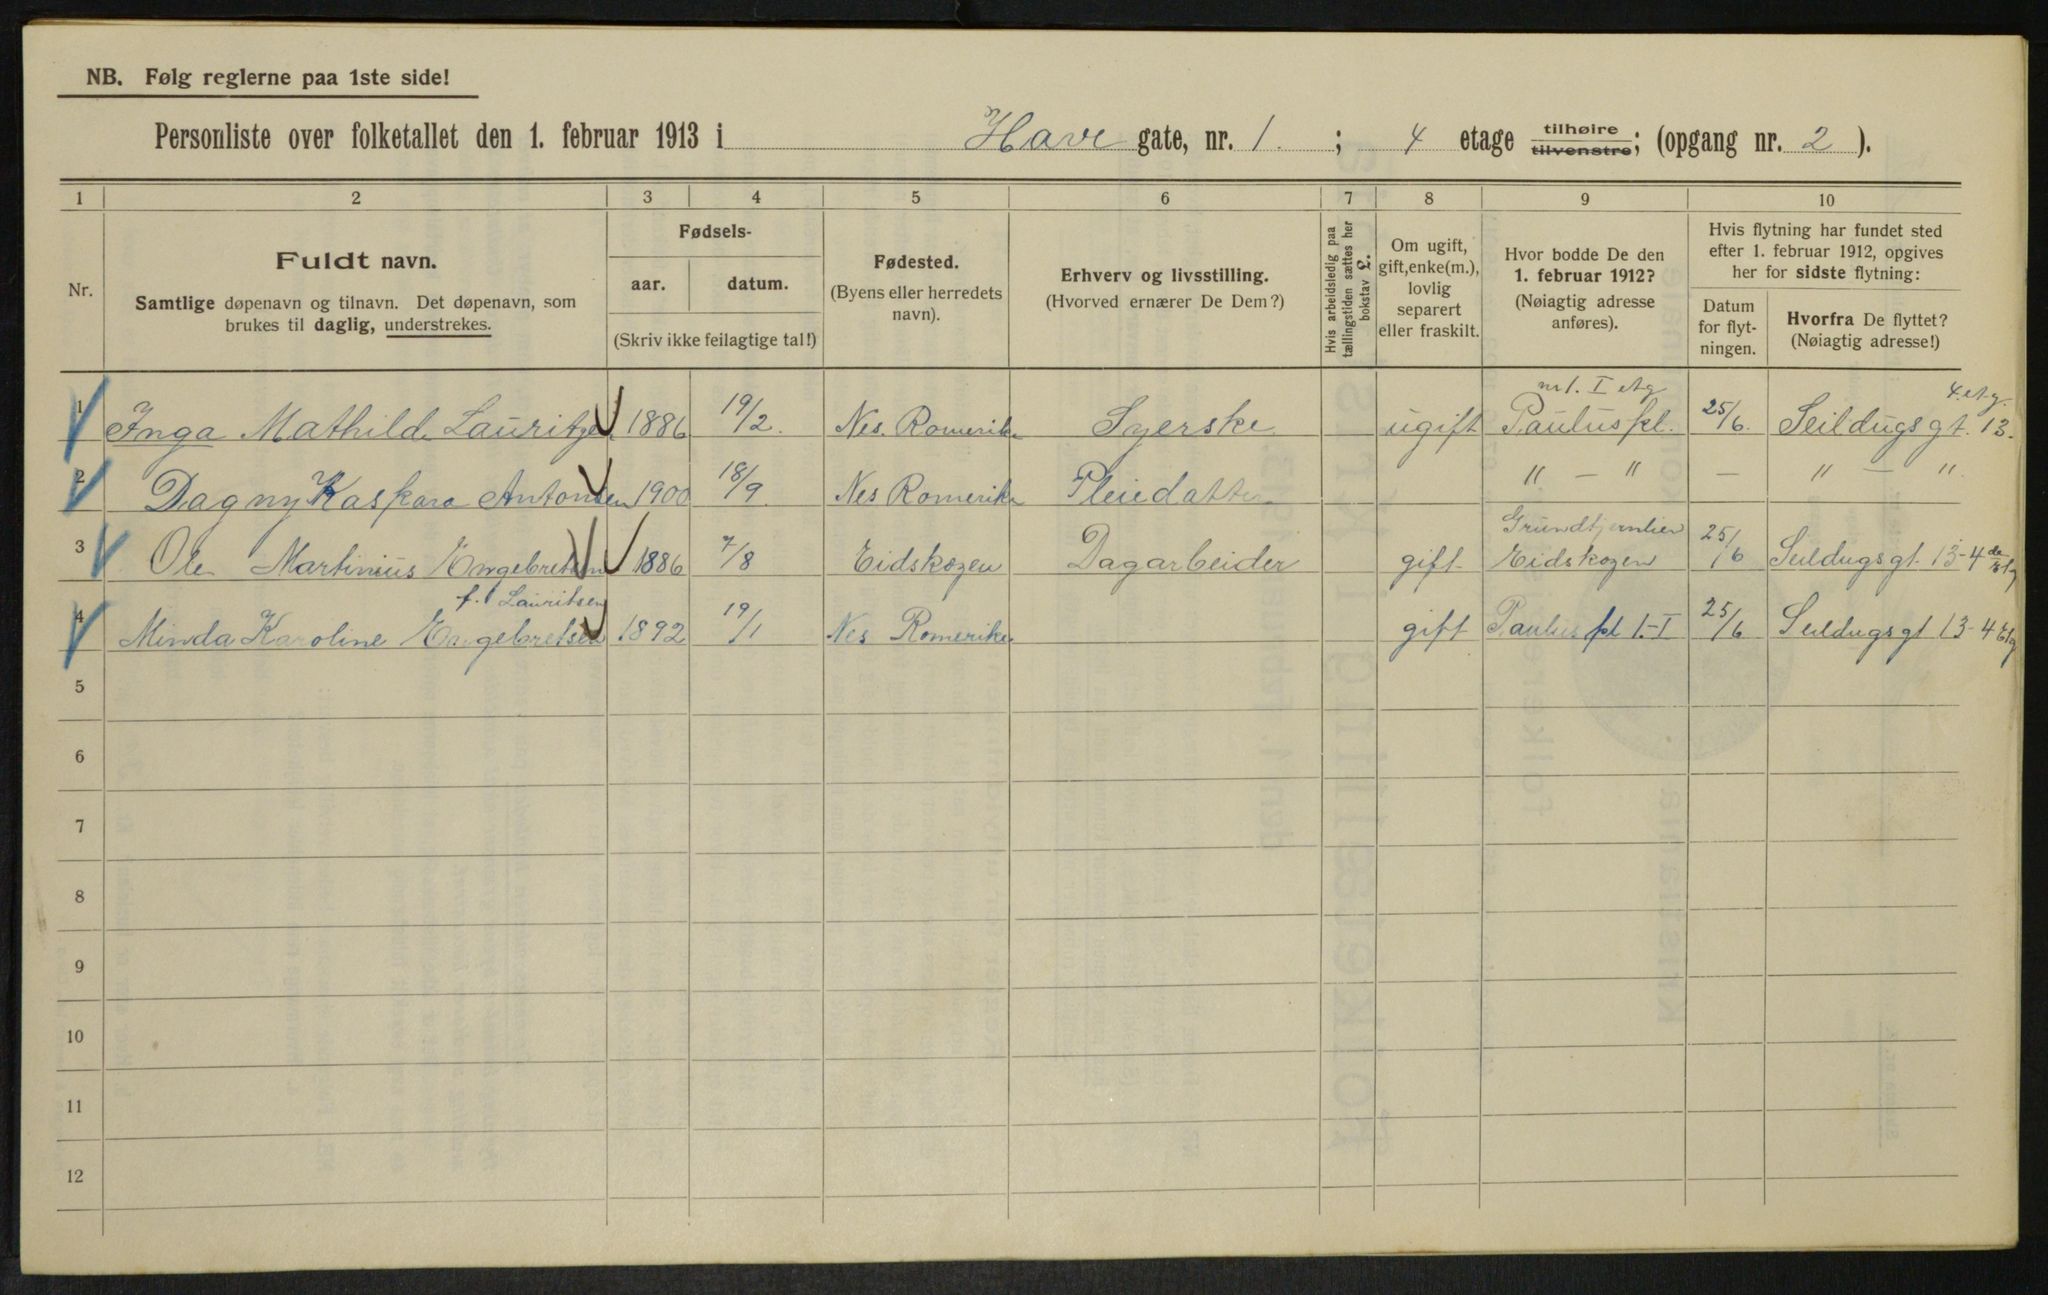 NB. Følg reglerne paa 1ste side!
Personliste over folketallet den 1. februar 1913 i Have gate, nr. 1 ; 4 etage tilhøire tilvenstre; (opgang nr. 2 ).
1 2 3 4 5 6 7 8 9 10
Nr.
Fuldt navn.
Samtlige døpenavn og tilnavn. Det døpenavn, som
brukes til daglig, understrekes.
Fødsels-
aar. datum.
(Skriv ikke feilagtige tal!)
Fødested.
(Byens eller herredets
navn).
Erhverv og livsstilling.
(Hvorved ernærer De Dem?)
Hvis arbeidsledig paa
tællingstiden sættes her
bokstav L.
Om ugift,
gift, enke(m.),
lovlig
separert
eller fraskilt.
Hvor bodde De den
1. februar 1912?
(Nøiagtig adresse
anføres).
Hvis flytning har fundet sted
efter 1. februar 1912, opgives
her for sidste flytning:
Datum
for flyt-
ningen.
Hvorfra De flyttet?
(Nøiagtig adresse!)
nr 1. I etg 4. etg.
1 Inga Mathilde Lauritzen 1886 19/2. Nes. Romerike Syerske ugift Pauluspl. 25/6. Seildugsgt. 13.
2 Dagny Kaspara Antonsen 1900 18/9. Nes Romerike Pleiedatter " — " — " — "
3 Ole Martinius Engebretsen 1886 7/8 Eidskogen Dagarbeider gift Grundtjernlien Eidskogen 25/6 Seildugsgt. 13-4de Etg
f. Lauritsen
4 Minda Karoline Engebretsen 1892 19/1 Nes Romerike gift Paulus pl 1.-I 25/6 Seildugsgt 13-4 Etg
5
6
7
8
9
10
11
12